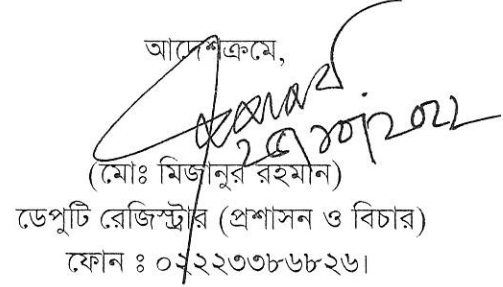 আদেশক্রমে,
(মোঃ মিজানুর রহমান)
ডেপুটি রেজিস্ট্রার (প্রশাসন ও বিচার)
ফোন ঃ ০২২২৩৩৮৬৮২৬।